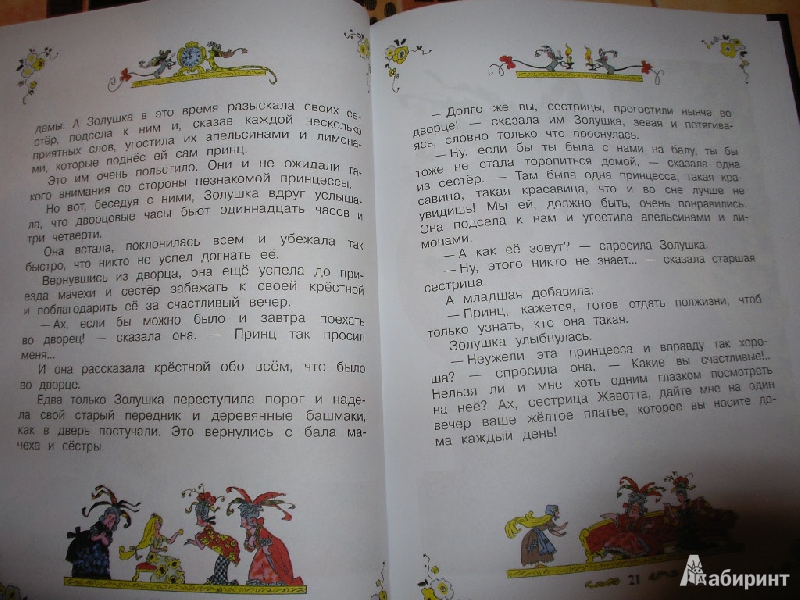 дамы. А Золушка в это время разыскала своих се-
стёр, подсела к ним и, сказав каждой несколько
приятных слов, угостила их апельсинами и лимона-
ми, которые поднёс ей сам принц.
Это им очень польстило. Они и не ожидали та-
кого внимания со стороны незнакомой принцессы.
Но вот, беседуя с ними, Золушка вдруг услыша-
ла, что дворцовые часы бьют одиннадцать часов и
три четверти.
Она встала, поклонилась всем и убежала так
быстро, что никто не успел догнать её.
Вернувшись из дворца, она ещё успела до при-
езда мачехи и сестёр забежать к своей крёстной
и поблагодарить её за счастливый вечер.
— Ах, если бы можно было и завтра поехать
во дворец! — сказала она. — Принц так просил
меня...
И она рассказала крёстной обо всём, что было
во дворце.
Едва только Золушка переступила порог и наде-
ла свой старый передник и деревянные башмаки,
как в дверь постучали. Это вернулись с бала ма-
чеха и сёстры.
— Долго же вы, сестрицы, прогостили нынче во
дворце! — сказала им Золушка, зевая и потягива-
ясь, словно только что проснулась.
— Ну, если бы ты была с нами на балу, ты бы
тоже не стала торопиться домой, — сказала одна
из сестёр. — Там была одна принцесса, такая кра-
савица, такая красавица, что и во сне лучше не
увидишь! Мы ей, должно быть, очень понравились.
Она подсела к нам и угостила апельсинами и ли-
монами.
— А как её зовут? — спросила Золушка.
— Ну, этого никто не знает... — сказала старшая
сестрица.
А младшая добавила:
— Принц, кажется, готов отдать полжизни, чтоб
только узнать, кто она такая.
Золушка улыбнулась.
— Неужели эта принцесса и вправду так хоро-
ша? — спросила она. — Какие вы счастливые!..
Нельзя ли и мне хоть одним глазком посмотреть
на неё? Ах, сестрица Жавотта, дайте мне на один
вечер ваше жёлтое платье, которое вы носите до-
ма каждый день!
21
Лабиринт